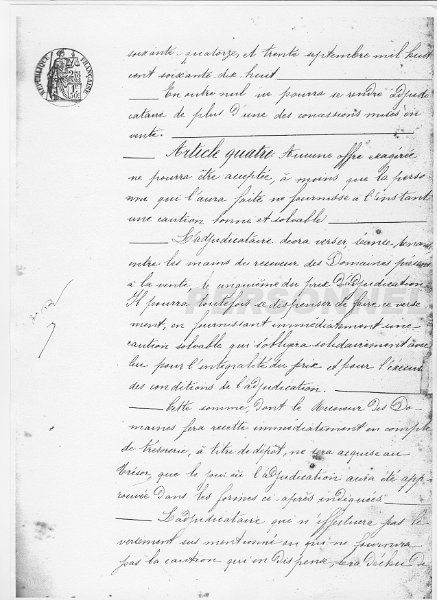 RÉPUBLIQUE FRANÇAISE
soixante-quatorze, et trente septembre mil huit
cent soixante dix huit.
En outre nul ne pourra se rendre adjudi-
cataire de plus d'une des concessions mises en
vente.
Article quatre. Aucune offre exagérée
ne pourra être acceptée, à moins que la person-
ne qui l'aura faite ne fournisse à l'instant
une caution bonne et solvable
L'adjudicataire devra verser, séance tenante
entre les mains du receveur des Domaines présent
à la vente, le cinquième du prix d'adjudication
Il pourra toutefois se dispenser de faire ce verse-
ment, en fournissant immédiatement une
caution solvable qui s'obligera solidairement avec
lui pour l'intégralité du prix et pour l'exécution
des conditions de l'adjudication.
Cette somme, dont le Receveur des Do-
maines fera recette immédiatement en compte
de trésorerie, à titre de dépôt, ne sera acquise au
Trésor, que le jour où l'adjudication aura été app-
rouvée dans les formes ci-après indiquées
L'adjudicataire qui n'effectuera pas le
versement sus mentionné ou qui ne fournira
pas la caution qui en dispense, sera déchu de